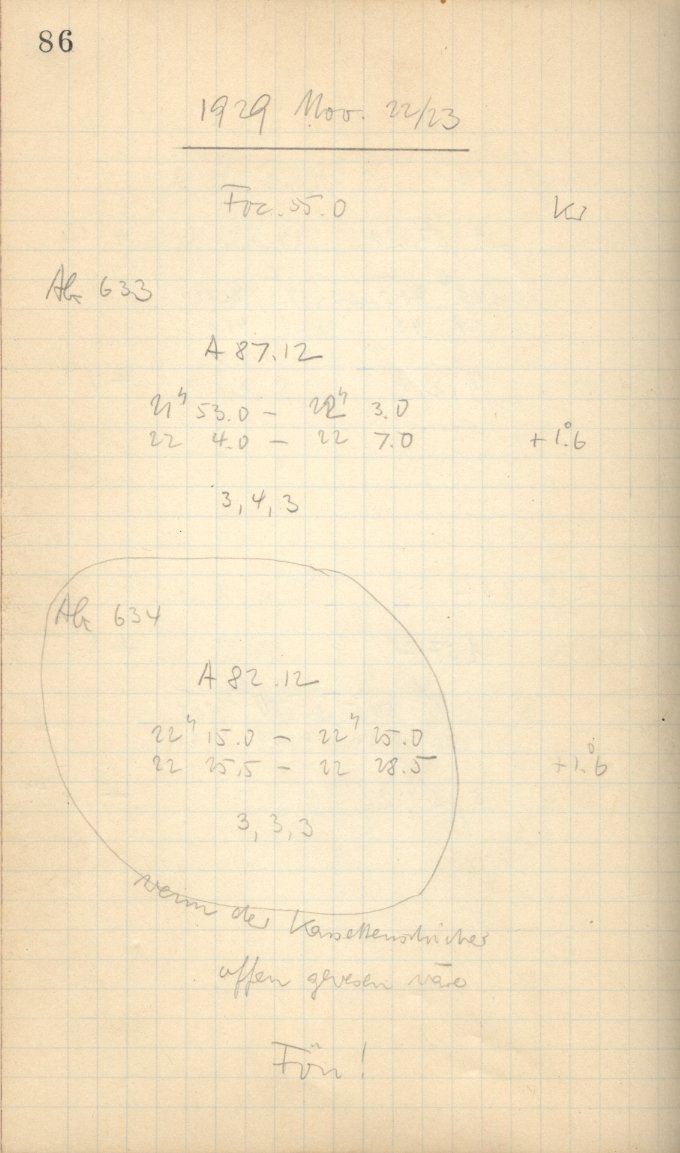 86
1929 Nov. 22/23
Foc. 55.0 Kr
AG 633
A 87.12
21ʰ 53.0 – 22ʰ 3.0
22 4.0 – 22 7.0 +1.°6
3, 4, 3
634
A 82.12
22ʰ 15.0 – 22ʰ 25.0
22 25.5 – 22 28.5 +1.°6
3, 3, 3
wenn der Kassettenschieber
offen gewesen wäre
Fön!